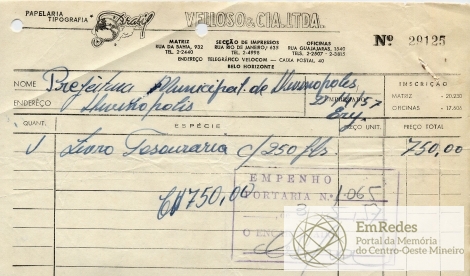 PAPELARIA
TIPOGRAFIA
Brasil
VELLOSO & CIA. LTDA.
MATRIZ
RUA DA BAHIA, 932
TEL. 2-2440
SECÇÃO DE IMPRESSOS
RUA RIO DE JANEIRO, 635
TEL. 2-4998
OFICINAS
RUA GUAJAJARAS, 1540
TELS. 2-2807 - 2-0815
ENDEREÇO TELEGRÁFICO VELOCOM — CAIXA POSTAL, 40
BELO HORIZONTE
Nº 29125
NOME Prefeitura Municipal de Divinópolis
ENDEREÇO Divinópolis
INSCRIÇÃO
MATRIZ - 20.230
OFICINAS - 17.605
QUANT. ESPÉCIE PREÇO UNIT. PREÇO TOTAL
1 Livro Tesouraria c/250 fls. 750,00
Cr$ 750,00
EMPENHO
PORTARIA N.º 1.065
EmRedes
Portal da Memória
do Centro-Oeste Mineiro